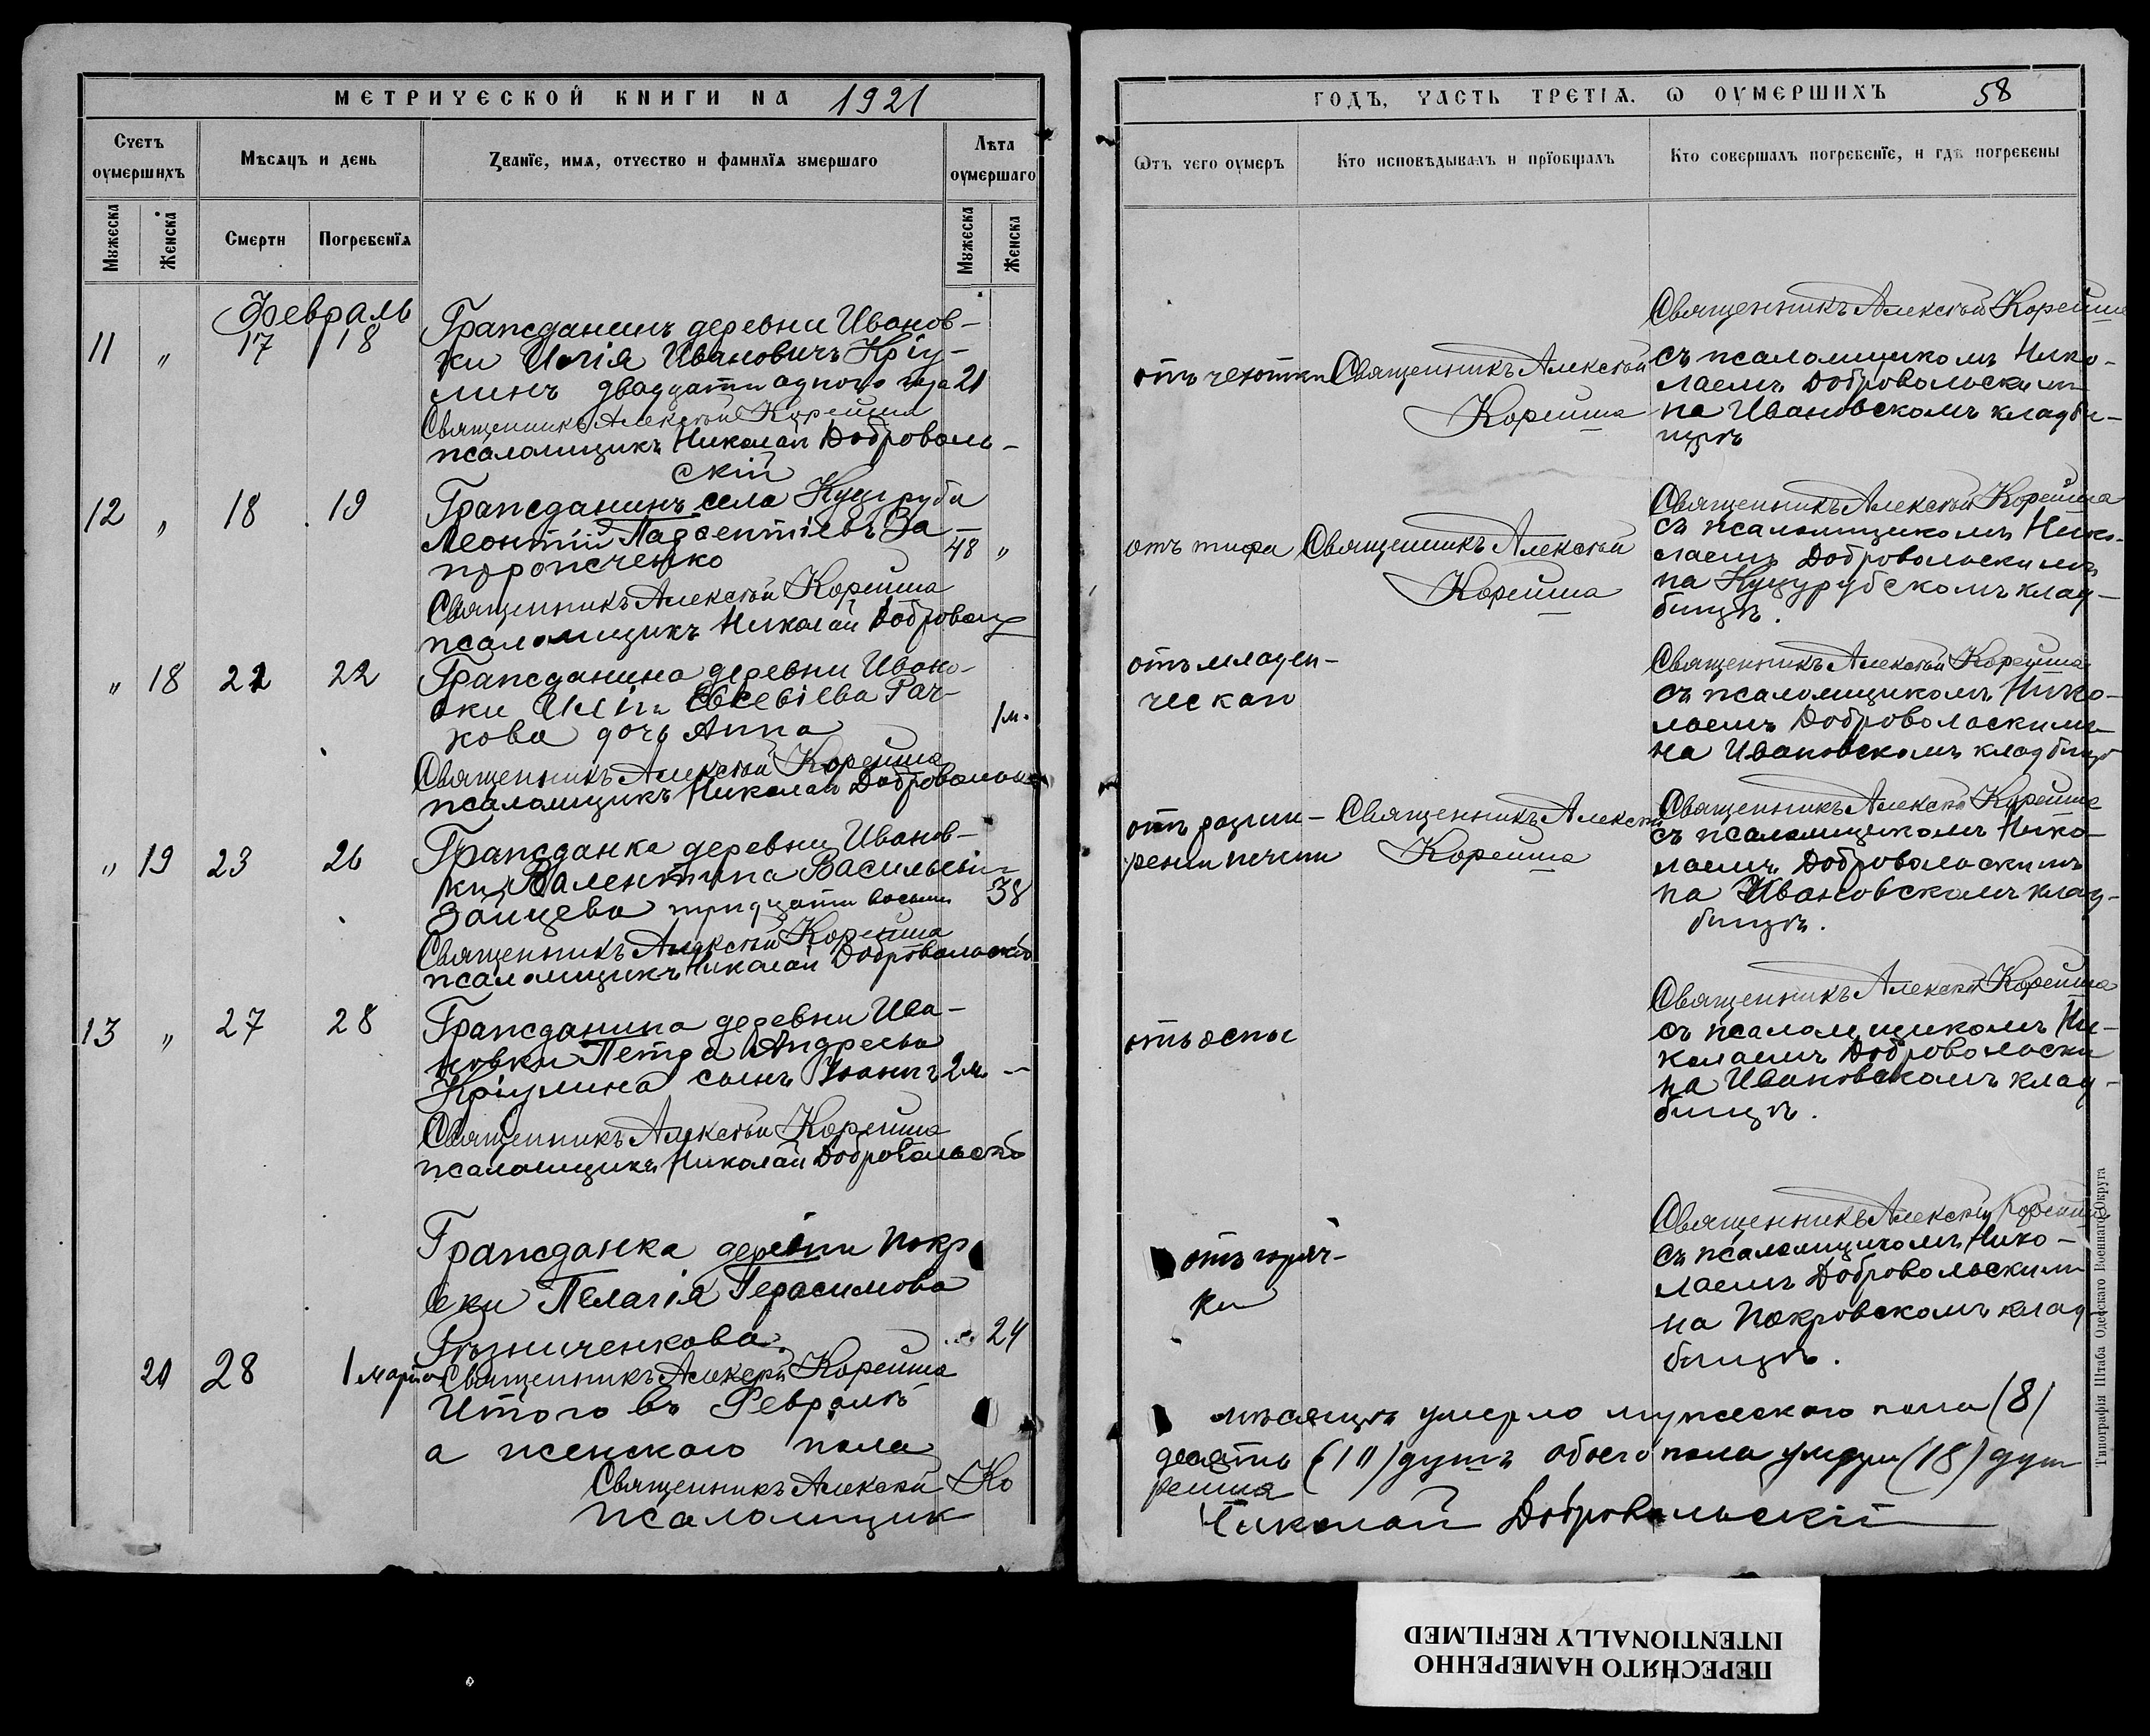 МЕТРИЧЕСКОЙ КНИГИ НА 1921
Счетъ оумершихъ
Мѣсяцъ и день
Званїе, имя, отчество и фамилїя умершаго
Лѣта оумершаго
Мужеска
Женска
Смерти
Погребенїя
Мужеска
Женска
Февраль
11 „ 17 18
Гражданинъ деревни Иванов-
ки Илія Ивановичъ Кріу-
линъ двадцати одного года 21
Священникъ Алексѣй Корейша
псаломщикъ Николай Доброволь-
скій
12 „ 18 19
Гражданинъ села Куцуруба
Леонтій Парѳентіевъ За-
порожченко 48 „
Священникъ Алексѣй Корейша
псаломщикъ Николай Доброволь
„ 18 22 22
Гражданина деревни Ивано-
вки Иліи Евсевіева Рач-
кова дочь Анна 1 м.
Священникъ Алексѣй Корейша
псаломщикъ Николай Добровольск
„ 19 23 26
Гражданка деревни Иванов-
ки Валентина Васильевна
Зайцева тридцати восьми 38
Священникъ Алексѣй Корейша
псаломщикъ Николай Добровольскій
13 „ 27 28
Гражданина деревни Ива-
новки Петра Андреева
Кріулина сынъ Іоаннъ 2 м. —
Священникъ Алексѣй Корейша
псаломщикъ Николай Добровольскій
Гражданка деревни Покр
вки Пелагія Герасимова
Рѣзниченкова 24
20 28 1 марта Священникъ Алексѣй Корейша
Итого въ Февралѣ
а женского пола
Священникъ Алексѣй Ко
псаломщик
ГОДЪ, ЧАСТЬ ТРЕТІЯ. Ѡ ОУМЕРШИХЪ 58
Ѡтъ чего оумеръ
Кто исповѣдывалъ и прїобщалъ
Кто совершалъ погребенїе, и гдѣ погребены
отъ чехотки
Священникъ Алексѣй
Корейша
Священникъ Алексѣй Корейша
съ псаломщикомъ Нико-
лаемъ Добровольскимъ
на Ивановскомъ кладби-
щѣ
отъ тифа
Священникъ Алексѣй
Корейша
Священникъ Алексѣй Корейша
съ псаломщикомъ Нико-
лаемъ Добровольскимъ
на Куцурубскомъ клад-
бищѣ.
отъ младен-
ческаго
Священникъ Алексѣй Корейша
съ псаломщикомъ Нико-
лаемъ Добровольскимъ
на Ивановскомъ кладбищѣ
отъ разши-
рения печени
Священникъ Алексѣй
Корейша
Священникъ Алексѣй Корейша
съ псаломщикомъ Нико-
лаемъ Добровольскимъ
на Ивановскомъ клад-
бищѣ.
отъ оспы
Священникъ Алексѣй Корейша
съ псаломщикомъ Ни-
колаемъ Добровольски
на Ивановскомъ клад-
бищѣ.
отъ горяч-
ки
Священникъ Алексѣй Корейша
съ псаломщикомъ Нико-
лаемъ Добровольскимъ
на Покровскомъ клад
бищѣ.
мѣсяцѣ умерло мужеского пола (8)
десять (10) душъ обоего пола умерли (18) душ
рейша
Николай Добровольскій
Типографія Штаба Одесскаго Военнаго Округа
ПЕРЕСНЯТО НАМЕРЕННО
INTENTIONALLY REFILMED